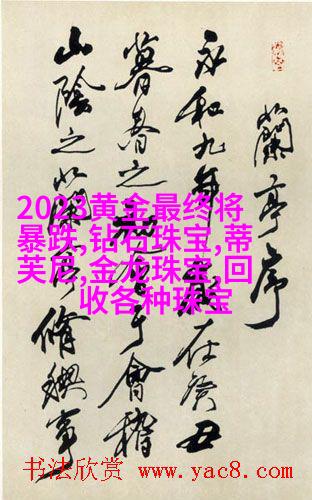 蘭亭序
永和九年歲在癸丑
暮春之初會于會稽
山陰之蘭亭脩稧事
2023黄金最终将
暴跌,钻石珠宝,蒂
芙尼,金龙珠宝,回
收各种珠宝
书法欣赏 www.yac8.com